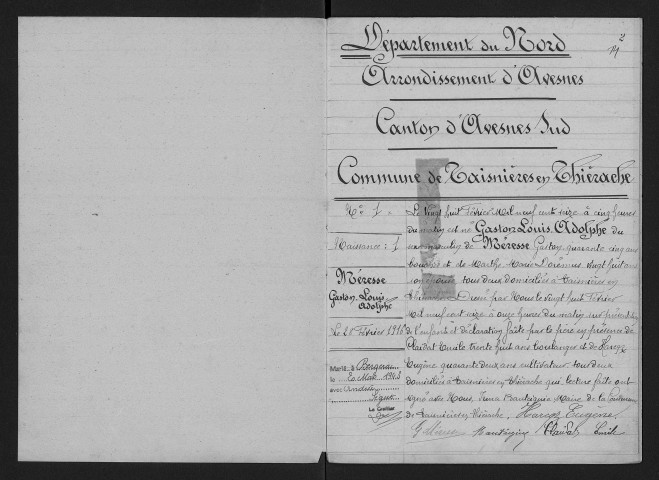 Département du Nord
2
Arrondissement d'Avesnes
Canton d'Avesnes Sud
Commune de Taisnières en Thiérache
No 1
Naissance : 1
Méresse
Gaston Louis
Adolphe
Le 28 Février 1916
Marié à Bergerac
le 20 Mai 1943
avec
Le Greffier
Le Vingt huit Février Mil neuf cent seize à cinq heures
du matin est né Gaston Louis Adolphe du
de Méresse Gaston quarante cinq ans
et de Marthe Marie vingt huit ans
son épouse tous deux domiciliés à Taisnières en
Thiérache Dressé par Nous le vingt huit Février
Mil neuf cent seize à onze heures du matin sur présentation
de l'enfant et déclaration faite par le père en présence de
Flaidat Emile trente huit ans boulanger et de Harcq
Eugène quarante deux ans cultivateur tous deux
domiciliés à Taisnières en Thiérache qui, lecture faite ont
signé avec Nous, Maire de la Commune
de Taisnières en Thiérache. Harcq Eugène
G Méresse Flaidat Emile